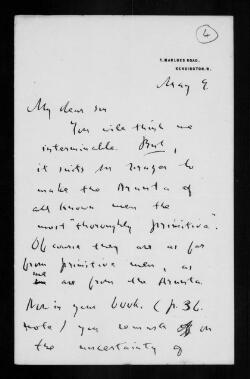 4
1, MARLOES ROAD,
KENSINGTON, W.
May 9
My dear sir
You will think me
interminable But,
it suits Dr Frazer to
make the Arunta of
all known men the
most "thoroughly primitive".
Of course they are as far
from primitive men, as
we are from the Arunta.
Now in your book. (p. 36
note) you remark on
the uncertainty of